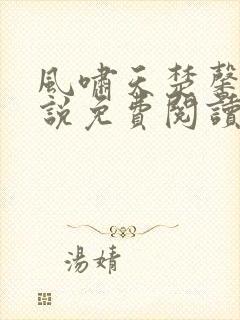 風嘯天楚馨
說免費閱讀
湯婧